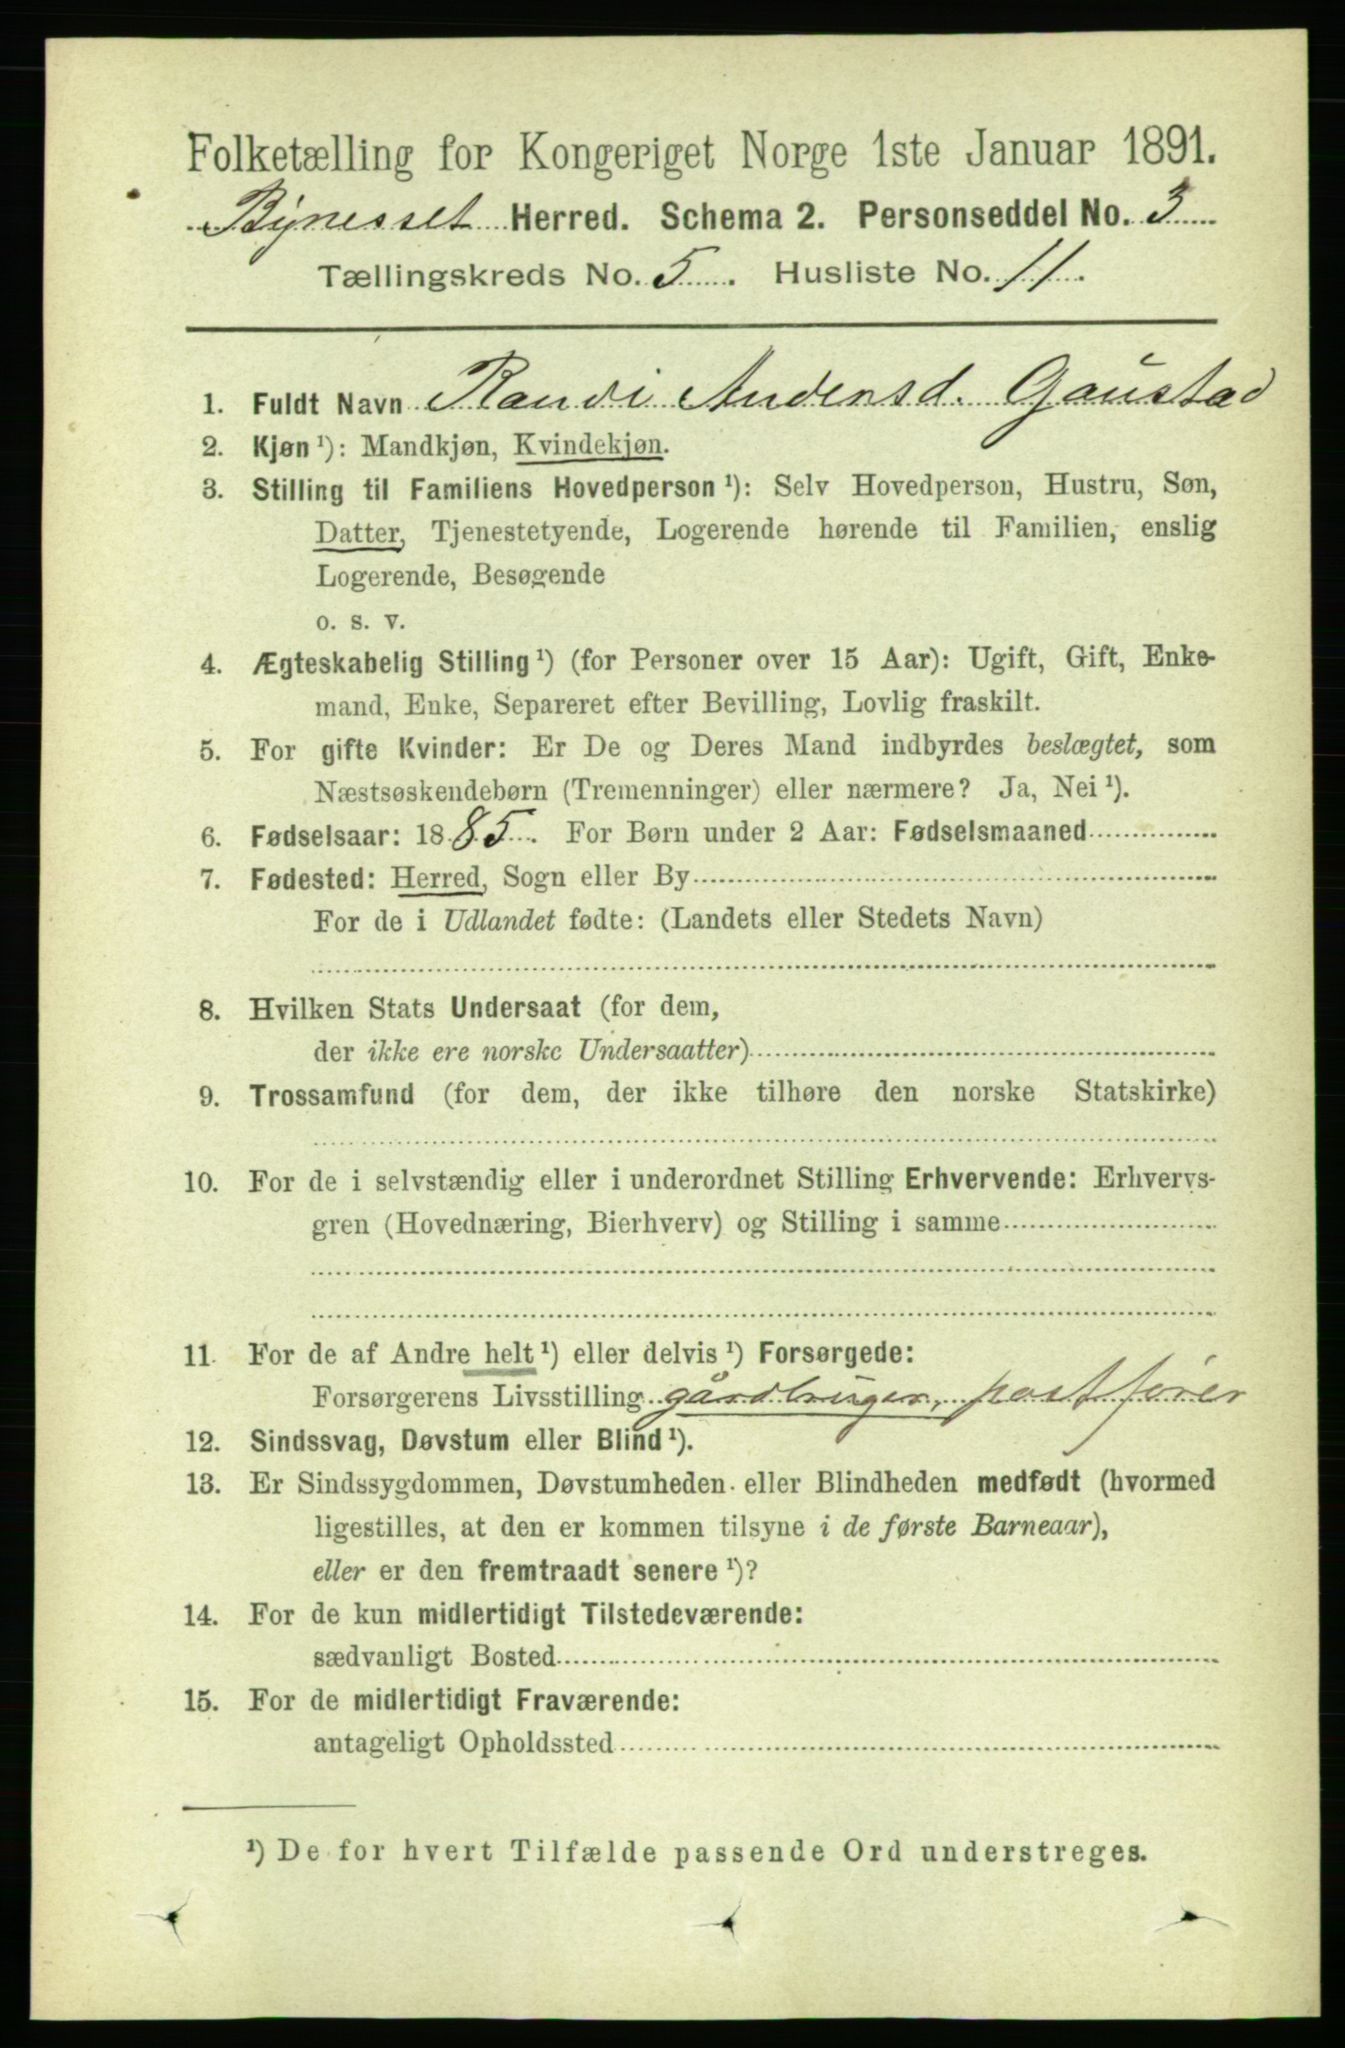 Folketælling for Kongeriget Norge 1ste Januar 1891.
Bynesset Herred. Schema 2. Personseddel No. 3
Tællingskreds No. 5. Husliste No. 11.
1. Fuldt Navn Randi Andersd. Gaustad
2. Kjøn ¹): Mandkjøn, Kvindekjøn.
3. Stilling til Familiens Hovedperson ¹): Selv Hovedperson, Hustru, Søn,
Datter, Tjenestetyende, Logerende hørende til Familien, enslig
Logerende, Besøgende
o. s. v.
4. Ægteskabelig Stilling ¹) (for Personer over 15 Aar): Ugift, Gift, Enke-
mand, Enke, Separeret efter Bevilling, Lovlig fraskilt.
5. For gifte Kvinder: Er De og Deres Mand indbyrdes beslægtet, som
Næstsøskendebørn (Tremenninger) eller nærmere? Ja, Nei ¹).
6. Fødselsaar: 1885. For Børn under 2 Aar: Fødselsmaaned
7. Fødested: Herred, Sogn eller By
For de i Udlandet fødte: (Landets eller Stedets Navn)
8. Hvilken Stats Undersaat (for dem,
der ikke ere norske Undersaatter)
9. Trossamfund (for dem, der ikke tilhøre den norske Statskirke)
10. For de i selvstændig eller i underordnet Stilling Erhvervende: Erhvervs-
gren (Hovednæring, Bierhverv) og Stilling i samme
11. For de af Andre helt ¹) eller delvis ¹) Forsørgede:
Forsørgerens Livsstilling gårdbruger, postfører
12. Sindssvag, Døvstum eller Blind ¹).
13. Er Sindssygdommen, Døvstumheden eller Blindheden medfødt (hvormed
ligestilles, at den er kommen tilsyne i de første Barneaar),
eller er den fremtraadt senere ¹)?
14. For de kun midlertidigt Tilstedeværende:
sædvanligt Bosted
15. For de midlertidigt Fraværende:
antageligt Opholdssted
¹) De for hvert Tilfælde passende Ord understreges.